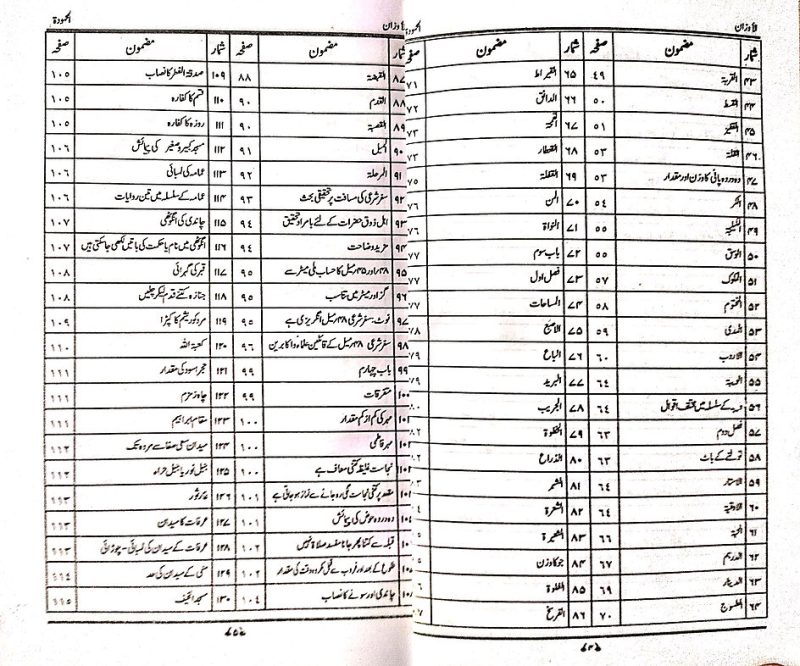 الاوزان المحمودۃ
شمار مضمون صفحہ شمار مضمون صفحہ
۴۳ القربۃ ۴۹ ۶۵ القیراط ۷۱
۴۴ القسط ۵۰ ۶۶ الدانق ۷۲
۴۵ القفیز ۵۱ ۶۷ القمحۃ ۷۳
۴۶ القلۃ ۵۳ ۶۸ القنطار ۷۳
۴۷ دہ دردہ پانی کا وزن اور مقدار ۵۳ ۶۹ القفلۃ ۷۵
۴۸ الکر ۵۴ ۷۰ المن ۷۶
۴۹ الکیلجۃ ۵۵ ۷۱ النواۃ ۷۶
۵۰ الوسق ۵۵ ۷۲ باب سوم ۷۷
۵۱ المکوک ۵۷ ۷۳ فصل اول ۷۷
۵۲ المختوم ۵۸ ۷۴ المساحات ۷۷
۵۳ المدی ۵۹ ۷۵ الاصبع ۷۸
۵۴ الاردب ۶۰ ۷۶ الباع ۷۹
۵۵ ۶۴ ۷۷ البرید ۷۹
۵۶ ویبہ کے سلسلہ میں مختلف اقوال ۶۴ ۷۸ الجریب
۵۷ فصل دوم ۶۳ ۷۹ الخطوۃ
۵۸ تولنے کے باٹ ۶۳ ۸۰ الذراع
۵۹ الاستار ۶۴ ۸۱ الشبر
۶۰ الاوقیۃ ۶۴ ۸۲ الشعرۃ
۶۱ الحبۃ ۶۶ ۸۳ الشعیرۃ
۶۲ الدرہم ۶۷ ۸۴ جو کا وزن
۶۳ الدینار ۶۹ ۸۵ الغلوۃ
۶۴ الطسوج ۷۰ ۸۶ الفرسخ
الاوزان المحمودۃ
شمار مضمون صفحہ شمار مضمون صفحہ
۸۷ القبضۃ ۸۸ ۱۰۹ صدقۃ الفطر کا نصاب ۱۰۵
۸۸ القدم ۹۰ ۱۱۰ قسم کا کفارہ ۱۰۵
۸۹ القصبۃ ۹۰ ۱۱۱ روزہ کا کفارہ ۱۰۵
۹۰ المیل ۹۱ ۱۱۲ مسجد کبیر و صغیر کی پیمائش ۱۰۶
۹۱ المرحلۃ ۹۲ ۱۱۳ عمامہ کی لمبائی ۱۰۶
۹۲ سفر شرعی کی مسافت پر تحقیقی بحث ۹۳ ۱۱۴ عمامہ کے سلسلہ میں تین روایات ۱۰۶
۹۳ اہل ذوق حضرات کے لئے بامراد تحقیق ۹۴ ۱۱۵ چاندی کی انگوٹھی ۱۰۷
۹۴ مزید وضاحت ۹۴ ۱۱۶ انگوٹھی میں نام یا حکمت کی باتیں لکھی جا سکتی ہیں ۱۰۷
۹۵ ۴۸ اور ۴۵ میل کا حساب کلی میٹر سے ۹۵ ۱۱۷ قبر کی گہرائی ۱۰۸
۹۶ گز اور میٹر میں تناسب ۹۵ ۱۱۸ جنازہ کتنے قدم لیکر چلیں ۱۰۸
۹۷ نوٹ: سفر شرعی ۴۸ میل انگریزی ہے ۹۵ ۱۱۹ مرد کو ریشم کا کپڑا ۱۰۹
۹۸ سفر شرعی ۴۸ میل کے قائلین علماء و اکابرین ۹۶ ۱۲۰ کعبۃ اللہ ۱۱۰
۹۹ باب چہارم ۹۹ ۱۲۱ حجر اسود کی مقدار ۱۱۱
۱۰۰ متفرقات ۹۹ ۱۲۲ چاہ زمزم ۱۱۱
۱۰۱ مہر کی کم از کم مقدار ۱۰۰ ۱۲۳ مقام ابراہیم ۱۱۱
۱۰۲ مہر فاطمی ۱۰۰ ۱۲۴ میدان سعی صفا سے مروہ تک ۱۱۲
نجاست غلیظہ کتنی معاف ہے ۱۰۰ ۱۲۵ جبل نور یا جبل حراء ۱۱۲
مقعد پر کتنی نجاست لگی رہ جانے سے نماز ہو جاتی ہے ۱۰۱ ۱۲۶ غار ثور ۱۱۳
دہ دردہ حوض کی پیمائش ۱۰۱ ۱۲۷ عرفات کا میدان ۱۱۳
قبلہ سے کتنا پھر جانا مفسد صلاۃ نہیں ۱۰۲ ۱۲۸ عرفات کے میدان کی لمبائی - چوڑائی ۱۱۳
طلوع کے بعد اور غروب سے قبل مکروہ وقت کی مقدار ۱۰۲ ۱۲۹ منی کے میدان کی حد ۱۱۴
چاندی اور سونے کا نصاب ۱۰۴ ۱۳۰ مسجد الخیف ۱۱۵